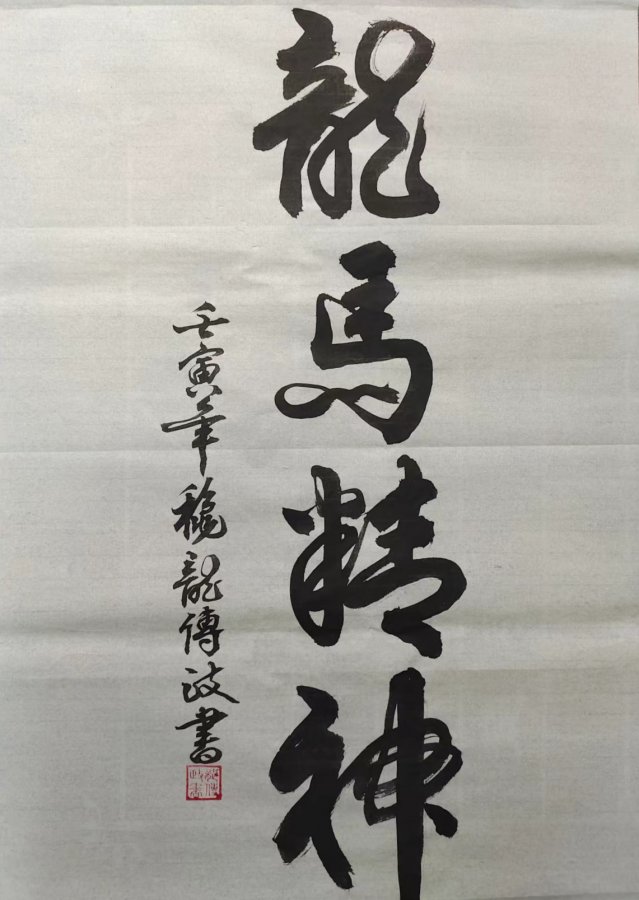 龍馬精神
壬寅年穐龍傳政書